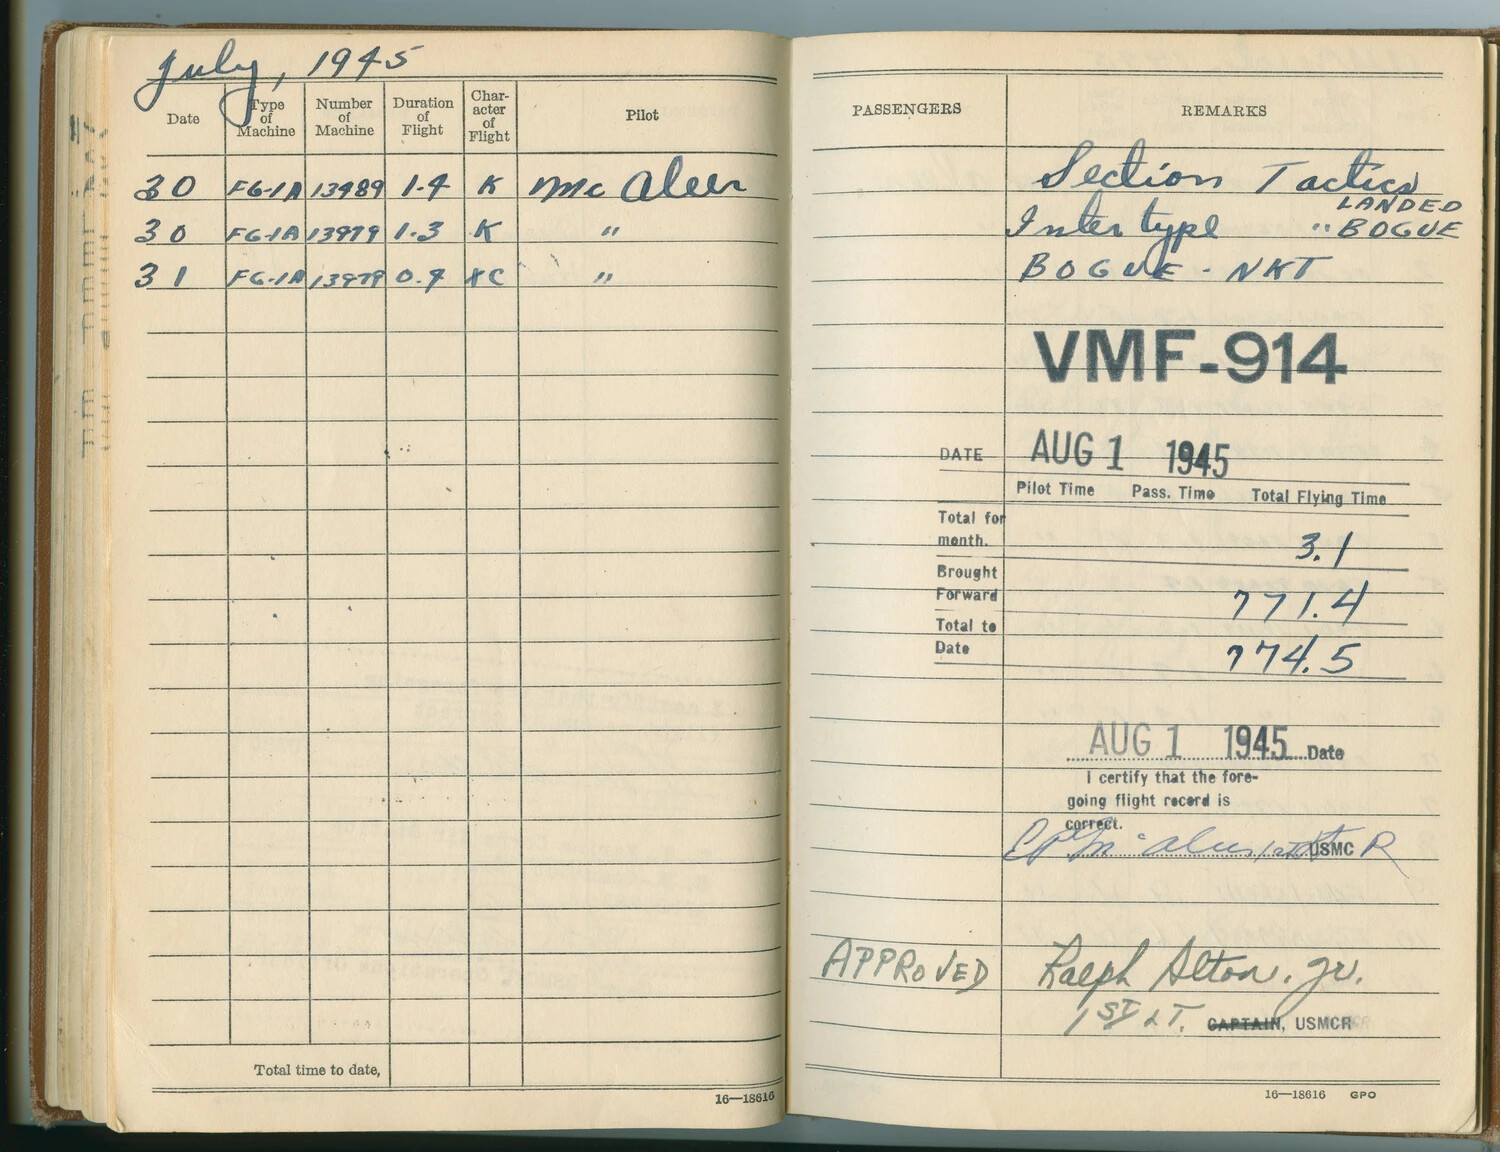 July, 1945
Date Type of Machine Number of Machine Duration of Flight Char-acter of Flight Pilot
30 FG-1A 13989 1.4 K Mc Aleer
30 FG-1A 13979 1.3 K "
31 FG-1A 13979 0.4 XC "
Total time to date,
16—18616
PASSENGERS REMARKS
Section Tactics
Inter type " LANDED BOGUE
BOGUE - NKT
VMF-914
DATE AUG 1 1945
Pilot Time Pass. Time Total Flying Time
Total for
month. 3.1
Brought
Forward 771.4
Total to
Date 774.5
AUG 1 1945 Date
I certify that the fore-
going flight record is
correct.
USMC R
APPROVED Ralph Alton, Jr.
1ST LT. CAPTAIN, USMCR
16—18616 GPO